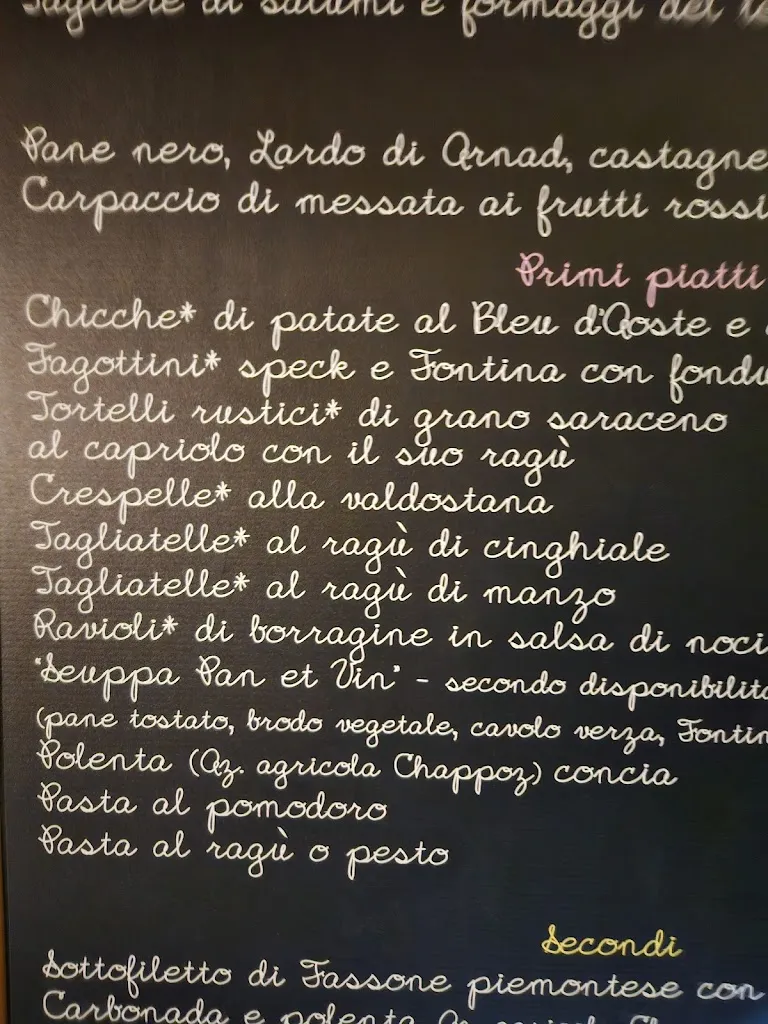 Tagliere di salumi e formaggi del
Pane nero, Lardo di Arnad, castagne
Carpaccio di messata ai frutti rossi
Primi piatti
Chicche* di patate al Bleu d'Aoste e
Fagottini* speck e Fontina con fondu
Tortelli rustici* di grano saraceno
al capriolo con il suo ragù
Crespelle* alla valdostana
Tagliatelle* al ragù di cinghiale
Tagliatelle* al ragù di manzo
Ravioli* di borragine in salsa di noci
"Seuppa Pan et Vin" - secondo disponibilità
(pane tostato, brodo vegetale, cavolo verza, Fontin
Polenta (Az. agricola Chappoz) concia
Pasta al pomodoro
Pasta al ragù o pesto
Secondi
Sottofiletto di Fassone piemontese con
Carbonada e polenta Az. agricola